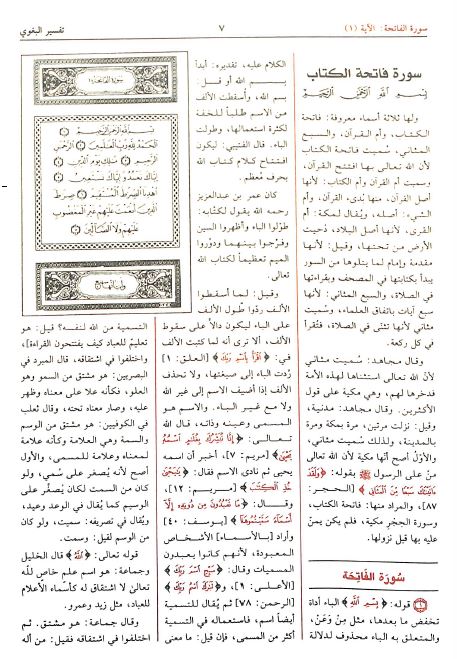 سورة الفاتحة: الآية (١)
٧
تفسير البغوي
سورة فاتحة الكتاب
بسم الله الرحمن الرحيم
ولها ثلاثة أسماء معروفة: فاتحة
الكتاب، وأم القرآن، والسبع
المثاني، سُميت فاتحة الكتاب
لأن الله تعالى بها افتتح القرآن،
وسميت أم القرآن وأم الكتاب: لأنها
أصل القرآن، منها بُدىء القرآن، وأم
الشيء: أصله، ويُقال لمكة: أم
القرى، لأنها أصل البلاد، دُحيت
الأرض من تحتها، وقيل: لأنها
مقدمة وإمام لما يتلوها من السور
يبدأ بكتابتها في المصحف وبقراءتها
في الصلاة، والسبع المثاني: لأنها
سبع آيات باتفاق العلماء، وسميت
مثاني لأنها تثنى في الصلاة، فتُقرأ
في كل ركعة.
وقال مجاهد: سُميت مثاني
لأن الله تعالى استثناها لهذه الأمة
فدخرها لهم، وهي مكية على قول
الأكثرين. وقال مجاهد: مدنية،
وقيل: نزلت مرتين، مرة بمكة ومرة
بالمدينة، ولذلك سُميت مثاني
والأوّل أصح أنها مكية لأن الله تعالى
منّ على الرسول ﷺ بقوله: ﴿وَلَقَدْ
ءَاتَيْنَكَ سَبْعًا مِّنَ ٱلْمَثَانِي﴾ [الحجر:
٨٧]، والمراد منها: فاتحة الكتاب،
وسورة الحِجر مكية، فلم يكن يمنّ
عليه بها قبل نزولها.
سُورَة الفَاتِحَة
قوله: ﴿بِسْمِ ٱللَّهِ﴾ الباء أداة
تخفض ما بعدها، مثل: مِنْ وعَنْ،
والمتعلق به الباء محذوف لدلالة
سورة الفاتحة
بسم الله الرحمن الرحيم
الحمد لله رب العلمين الرحمن
الرحيم ملك يوم الدين
إياك نعبد وإياك نستعين
اهدنا الصرط المستقيم صرط
الذين أنعمت عليهم غير المغضوب
عليهم ولا الضالين
الكلام عليه، تقديره: أبدأ
بسم الله أو قل:
بسم الله، وأسقطت الألف
من الاسم طلباً للخفة
لكثرة استعمالها، وطولت
الباء. قال القتيبي: ليكون
افتتاح كلام كتاب الله
بحرف مُعظّم.
كان عمر بن عبدالعزيز
رحمه الله يقول لكتّابه:
طوّلوا الباء وأظهروا السين
وفرّجوا بينهما ودوّروا
الميم تعظيماً لكتاب الله
تعالى.
وقيل: لما أسقطوا
الألف ردّوا طُول الألف
على الباء ليكون دالاً على سقوط
الألف، ألا ترى أنه لما كتبت الألف
في: ﴿ٱقْرَأْ بِٱسْمِ رَبِّكَ﴾ [العلق: ١]
رُدت الباء إلى صيغتها، ولا تحذف
الألف إذا أضيف الاسم إلى غير الله
ولا مع غير الباء. والاسم هو
المسمى وعينه وذاته، قال الله
تعالى: ﴿إِنَّا نُبَشِّرُكَ بِغُلَٰمٍ ٱسْمُهُۥ
يَحْيَىٰ﴾ [مريم: ٧]، أخبر أن اسمه
يحيى ثم نادى الاسم فقال: ﴿يَٰيَحْيَىٰ
خُذِ ٱلْكِتَٰبَ﴾ [مريم: ١٢]،
وقال: ﴿مَا تَعْبُدُونَ مِن دُونِهِۦٓ إِلَّآ
أَسْمَآءً سَمَّيْتُمُوهَآ﴾ [يوسف: ٤٠]
وأراد [بالأسماء] الأشخاص
المعبودة، لأنهم كانوا يعبدون
المسميات وقال: ﴿سَبِّحِ ٱسْمَ رَبِّكَ﴾
[الأعلى: ١]، و﴿تَبَٰرَكَ ٱسْمُ رَبِّكَ﴾
[الرحمن: ٧٨] ثم يقال للتسمية
أيضاً اسم، فاستعماله في التسمية
أكثر من المسمى، فإن قيل: ما معنى
التسمية من الله لنفسه؟ قيل: هو
تعليمٌ للعباد كيف يفتتحون القراءة]،
واختلفوا في اشتقاقه، قال المبرد في
البصريين: هو مشتق من السمو وهو
العلو، فكأنه علا على معناه وظهر
عليه، وصار معناه تحته، وقال ثعلب
في الكوفيين: هو مشتق من الوسم
والسمة وهي العلامة وكأنه علامة
لمعناه وعلامة للمسمى، والأول
أصح لأنه يُصغر على سُمي، ولو
كان من السمت لكان يُصغر على
الوسيم كما يُقال في الوعد وعيد،
ويُقال في تصريفه: سميت، ولو كان
من الوسم لقيل: وسمت.
قوله تعالى: ﴿ٱللَّهِ﴾ قال الخليل
وجماعة: هو اسم علم خاص للّه
تعالى لا اشتقاق له كأسماء الأعلام
للعباد، مثل زيد وعمرو.
وقال جماعة: هو مشتق. ثم
اختلفوا في اشتقاقه فقيل: من أله